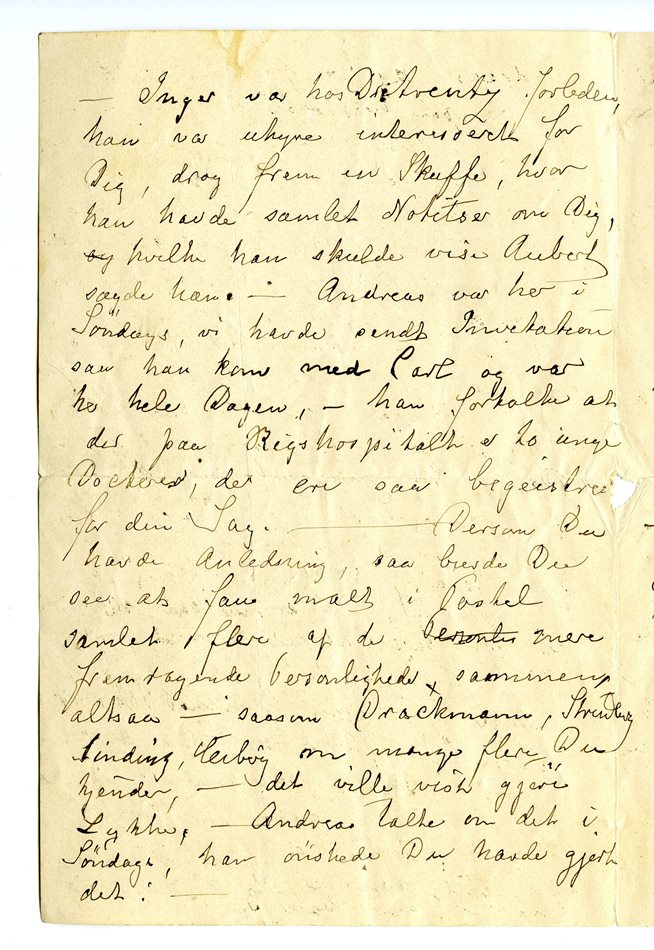 — Inger var hos Dr: Arentz forleden,
han var uhyre interesseret for
Dig, drog frem en Skuffe, hvor
han havde samlet Notitser om Dig,
og hvilke han skulde vise Aubert
sagde han. — Andreas var her i
Söndags, vi havde sendt Invitation
saa han kom med Carl og var
her hele Dagen, — han fortalte at
der paa Rigshospitalt er to unge
Doctere, der ere saa begeistree
for din Sag. — Dersom Du
havde Anledning, saa burde Du
see at faae malt i Pastel
samlet flere af de mere
fremragende Personlighede, sammen
altsaa — saasom Drackmann, Strinberg
Finding, Heiberg om mange flere Du
kjender, — det ville vist gjöre
Lykke, — Andreas talte om det i
Söndags, han önskede Du havde gjort
det! —